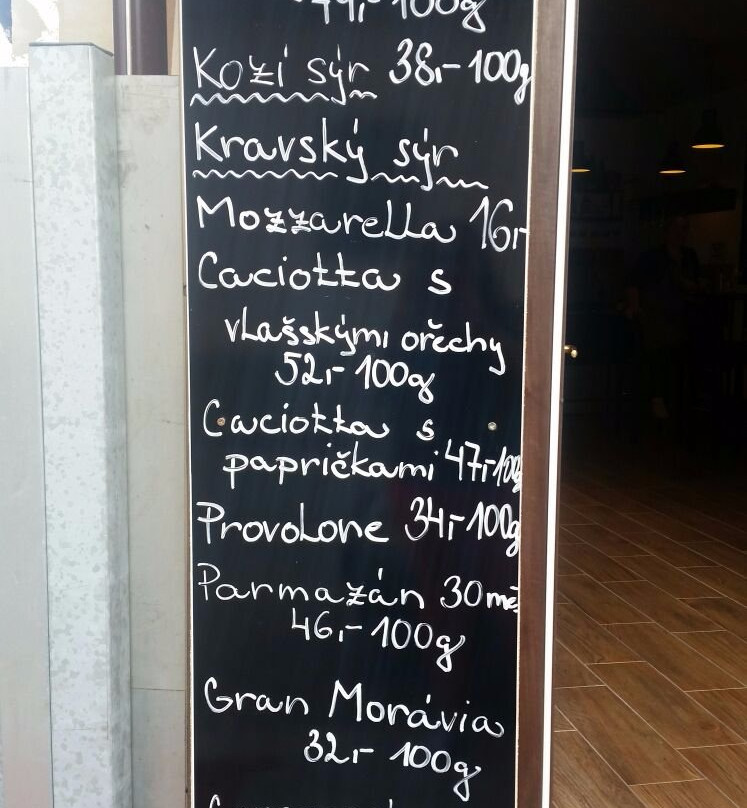 79,- 100g
Kozí sýr 38,- 100g
Kravský sýr
Mozzarella 16,-
Caciotta s
vlašskými ořechy
52,- 100g
Caciotta s
papričkami 47,- 100g
Provolone 34,- 100g
Parmazán 30 mě
46,- 100g
Gran Morávia
32,- 100g